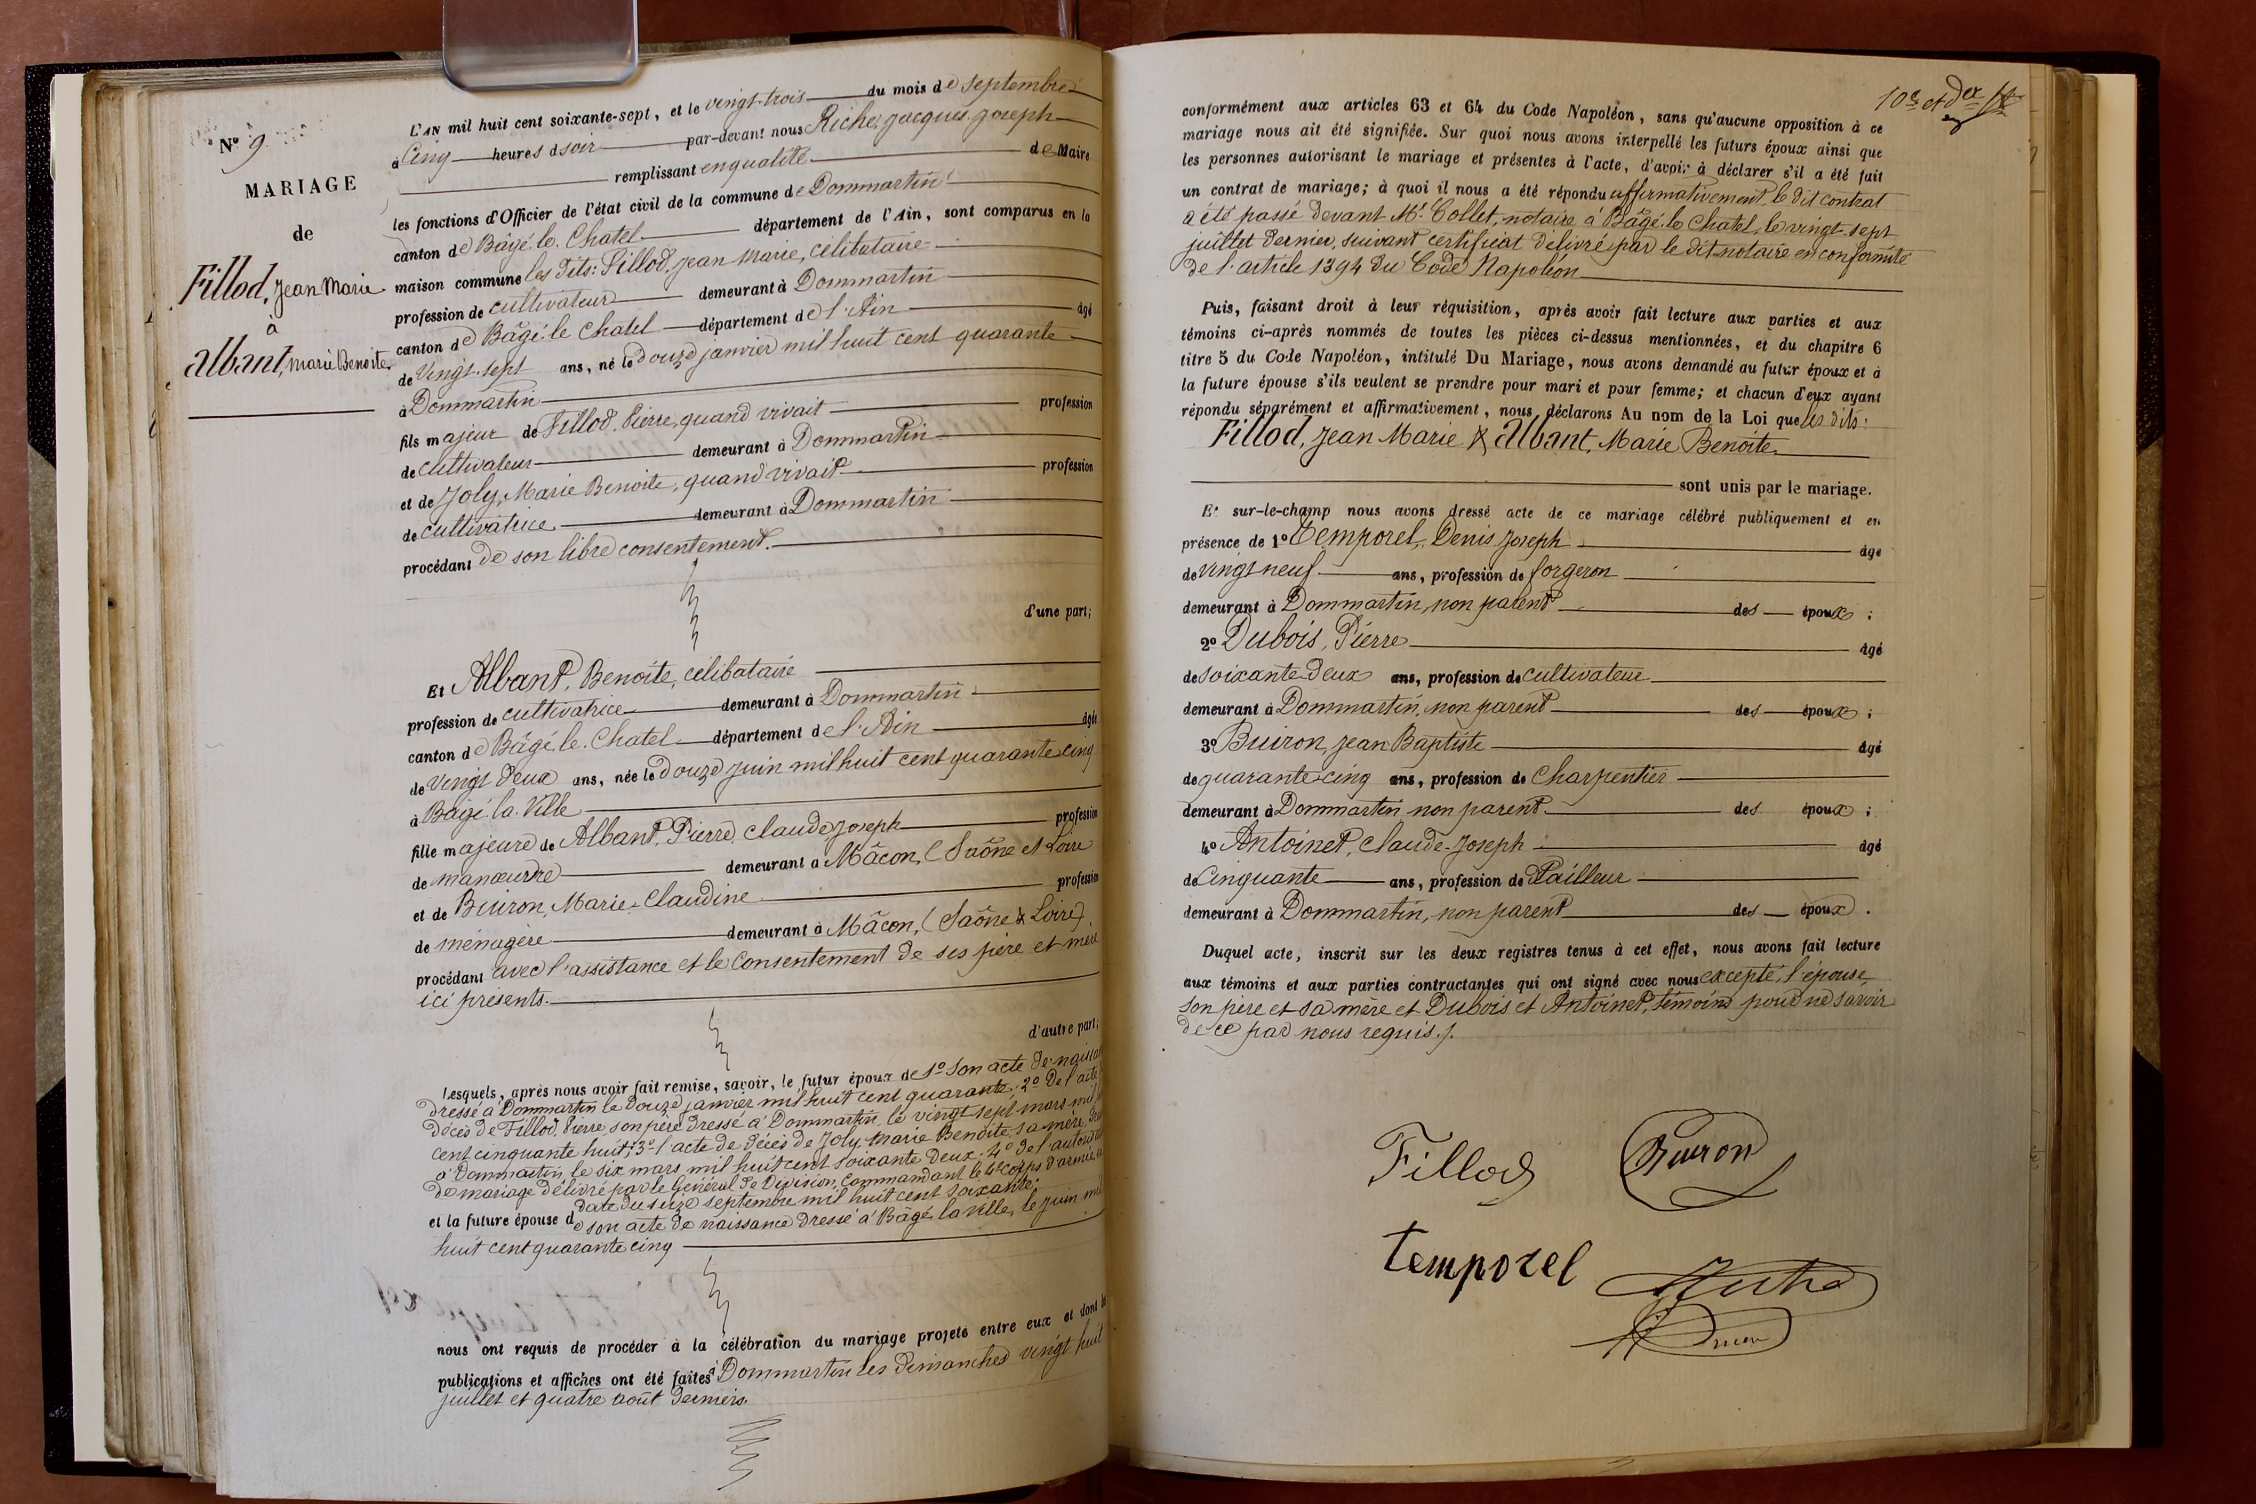 N° 9
MARIAGE
de
Fillod, Jean Marie
à
Albant, Marie Benoite.
L'AN mil huit cent soixante-sept, et le vingt-trois du mois de septembre
à Cinq heures dsoir par-devant nous Riche, Jacques, Joseph
remplissant en qualité de Maire
les fonctions d'Officier de l'état civil de la commune de Dommartin
canton de Bâgé-le-Chatel département de l'Ain, sont comparus en la
maison commune les dits: Fillod, Jean Marie, célibataire
profession de cultivateur demeurant à Dommartin
canton de Bâgé-le-Chatel département de l'Ain âgé
de Vingt-sept ans, né le Douze janvier mil huit cent quarante
à Dommartin
fils majeur de Fillod, Pierre, quand vivait profession
de cultivateur demeurant à Dommartin
et de Joly, Marie Benoite, quand vivait profession
de cultivatrice demeurant à Dommartin
procédant de son libre consentement.
d'une part;
Et Albant, Benoite, célibataire
profession de cultivatrice demeurant à Dommartin
canton de Bâgé-le-Chatel département de l'Ain âgée
de Vingt Deux ans, née le Douze Juin mil huit cent quarante cinq
à Bâgé-la-Ville
fille majeure de Albant, Pierre, Claude Joseph profession
de manoeuvre demeurant à Mâcon, (Saône et Loire
et de Buiron, Marie-Claudine profession
de ménagère demeurant à Mâcon, (Saône & Loire)
procédant avec l'assistance et le Consentement de ses père et mère
ici présents.
d'autre part;
Lesquels, après nous avoir fait remise, savoir, le futur époux de 1° Son acte de naissan
dressé à Dommartin le Douze janvier mil huit cent quarante; 2° De l'acte
décès de Fillod, Pierre son père dressé à Dommartin, le vingt sept mars mil
cent cinquante huit; 3° l'acte de décès de Joly, Marie Benoite, sa mère,
à Dommartin, le six mars mil huit cent soixante Deux; 4° de l'autoris
de mariage délivré par le Général de Division, Commandant le 4e corps d'armée,
date du seize septembre mil huit cent soixante;
et la future épouse de son acte de naissance dressé à Bâgé-la-Ville, le Juin mil
huit cent quarante cinq
nous ont requis de procéder à la célébration du mariage projeté entre eux et dont les
publications et affiches ont été faites à Dommartin les Dimanches vingt huit
juillet et quatre août derniers.
10e et der
conformément aux articles 63 et 64 du Code Napoléon, sans qu'aucune opposition à ce
mariage nous ait été signifiée. Sur quoi nous avons interpellé les futurs époux ainsi que
les personnes autorisant le mariage et présentes à l'acte, d'avoir à déclarer s'il a été fait
un contrat de mariage; à quoi il nous a été répondu affirmativement, le dit contrat
a été passé devant Me Collet, notaire à Bâgé-le-Chatel, le vingt-sept
juillet dernier, suivant certificat délivré par le dit notaire en conformité
de l'article 1394 du Code Napoléon
Puis, faisant droit à leur réquisition, après avoir fait lecture aux parties et aux
témoins ci-après nommés de toutes les pièces ci-dessus mentionnées, et du chapitre 6
titre 5 du Code Napoléon, intitulé Du Mariage, nous avons demandé au futur époux et à
la future épouse s'ils veulent se prendre pour mari et pour femme; et chacun d'eux ayant
répondu séparément et affirmativement, nous déclarons Au nom de la Loi que les dits:
Fillod, Jean Marie & Albant, Marie Benoite
sont unis par le mariage.
Et sur-le-champ nous avons dressé acte de ce mariage célébré publiquement et en
présence de 1° Temporel, Denis Joseph âgé
de vingt neuf ans, profession de forgeron
demeurant à Dommartin, non parent des époux;
2° Dubois, Pierre âgé
de soixante-deux ans, profession de cultivateur
demeurant à Dommartin, non parent des époux;
3° Buiron, Jean Baptiste âgé
de quarante-cinq ans, profession de Charpentier
demeurant à Dommartin non parent des époux;
4° Antoinet, Claude-Joseph âgé
de Cinquante ans, profession de Tailleur
demeurant à Dommartin, non parent des époux.
Duquel acte, inscrit sur les deux registres tenus à cet effet, nous avons fait lecture
aux témoins et aux parties contractantes qui ont signé avec nous excepté, l'épouse,
son père et sa mère et Dubois et Antoinet, témoins pour ne savoir
de ce par nous requis.
Fillod
Buiron
temporel